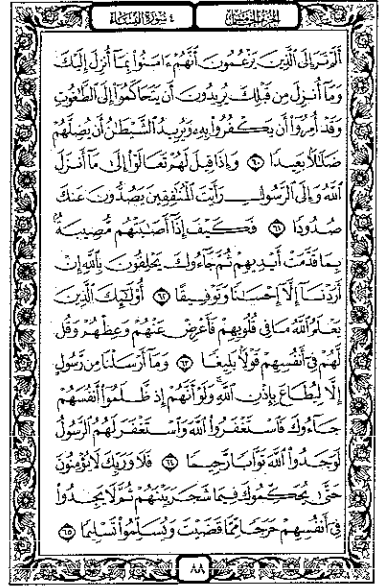 الجزء الخامس
٤ سورة النساء
أَلَمْ تَرَ إِلَى ٱلَّذِينَ يَزْعُمُونَ أَنَّهُمْ ءَامَنُوا۟ بِمَآ أُنزِلَ إِلَيْكَ
وَمَآ أُنزِلَ مِن قَبْلِكَ يُرِيدُونَ أَن يَتَحَاكَمُوٓا۟ إِلَى ٱلطَّٰغُوتِ
وَقَدْ أُمِرُوٓا۟ أَن يَكْفُرُوا۟ بِهِۦ وَيُرِيدُ ٱلشَّيْطَٰنُ أَن يُضِلَّهُمْ
ضَلَٰلًۢا بَعِيدًا ٦٠ وَإِذَا قِيلَ لَهُمْ تَعَالَوْا۟ إِلَىٰ مَآ أَنزَلَ
ٱللَّهُ وَإِلَى ٱلرَّسُولِ رَأَيْتَ ٱلْمُنَٰفِقِينَ يَصُدُّونَ عَنكَ
صُدُودًا ٦١ فَكَيْفَ إِذَآ أَصَٰبَتْهُم مُّصِيبَةٌۢ
بِمَا قَدَّمَتْ أَيْدِيهِمْ ثُمَّ جَآءُوكَ يَحْلِفُونَ بِٱللَّهِ إِنْ
أَرَدْنَآ إِلَّآ إِحْسَٰنًا وَتَوْفِيقًا ٦٢ أُو۟لَٰٓئِكَ ٱلَّذِينَ
يَعْلَمُ ٱللَّهُ مَا فِى قُلُوبِهِمْ فَأَعْرِضْ عَنْهُمْ وَعِظْهُمْ وَقُل
لَّهُمْ فِىٓ أَنفُسِهِمْ قَوْلًۢا بَلِيغًا ٦٣ وَمَآ أَرْسَلْنَا مِن رَّسُولٍ
إِلَّا لِيُطَاعَ بِإِذْنِ ٱللَّهِ وَلَوْ أَنَّهُمْ إِذ ظَّلَمُوٓا۟ أَنفُسَهُمْ
جَآءُوكَ فَٱسْتَغْفَرُوا۟ ٱللَّهَ وَٱسْتَغْفَرَ لَهُمُ ٱلرَّسُولُ
لَوَجَدُوا۟ ٱللَّهَ تَوَّابًا رَّحِيمًا ٦٤ فَلَا وَرَبِّكَ لَا يُؤْمِنُونَ
حَتَّىٰ يُحَكِّمُوكَ فِيمَا شَجَرَ بَيْنَهُمْ ثُمَّ لَا يَجِدُوا۟
فِىٓ أَنفُسِهِمْ حَرَجًا مِّمَّا قَضَيْتَ وَيُسَلِّمُوا۟ تَسْلِيمًا ٦٥
٨٨